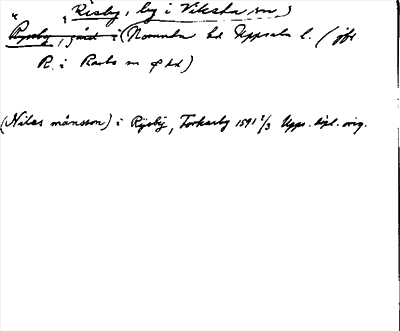 Risby, by i Viksta sn)
Rysby, gård i (Norunda hd Uppsala l. (jfr
R. i Rasbo sn o hd)
(Nilss månsson) i Rijsbij, Torkarby 1591 2/3 Upps. dipl. orig.